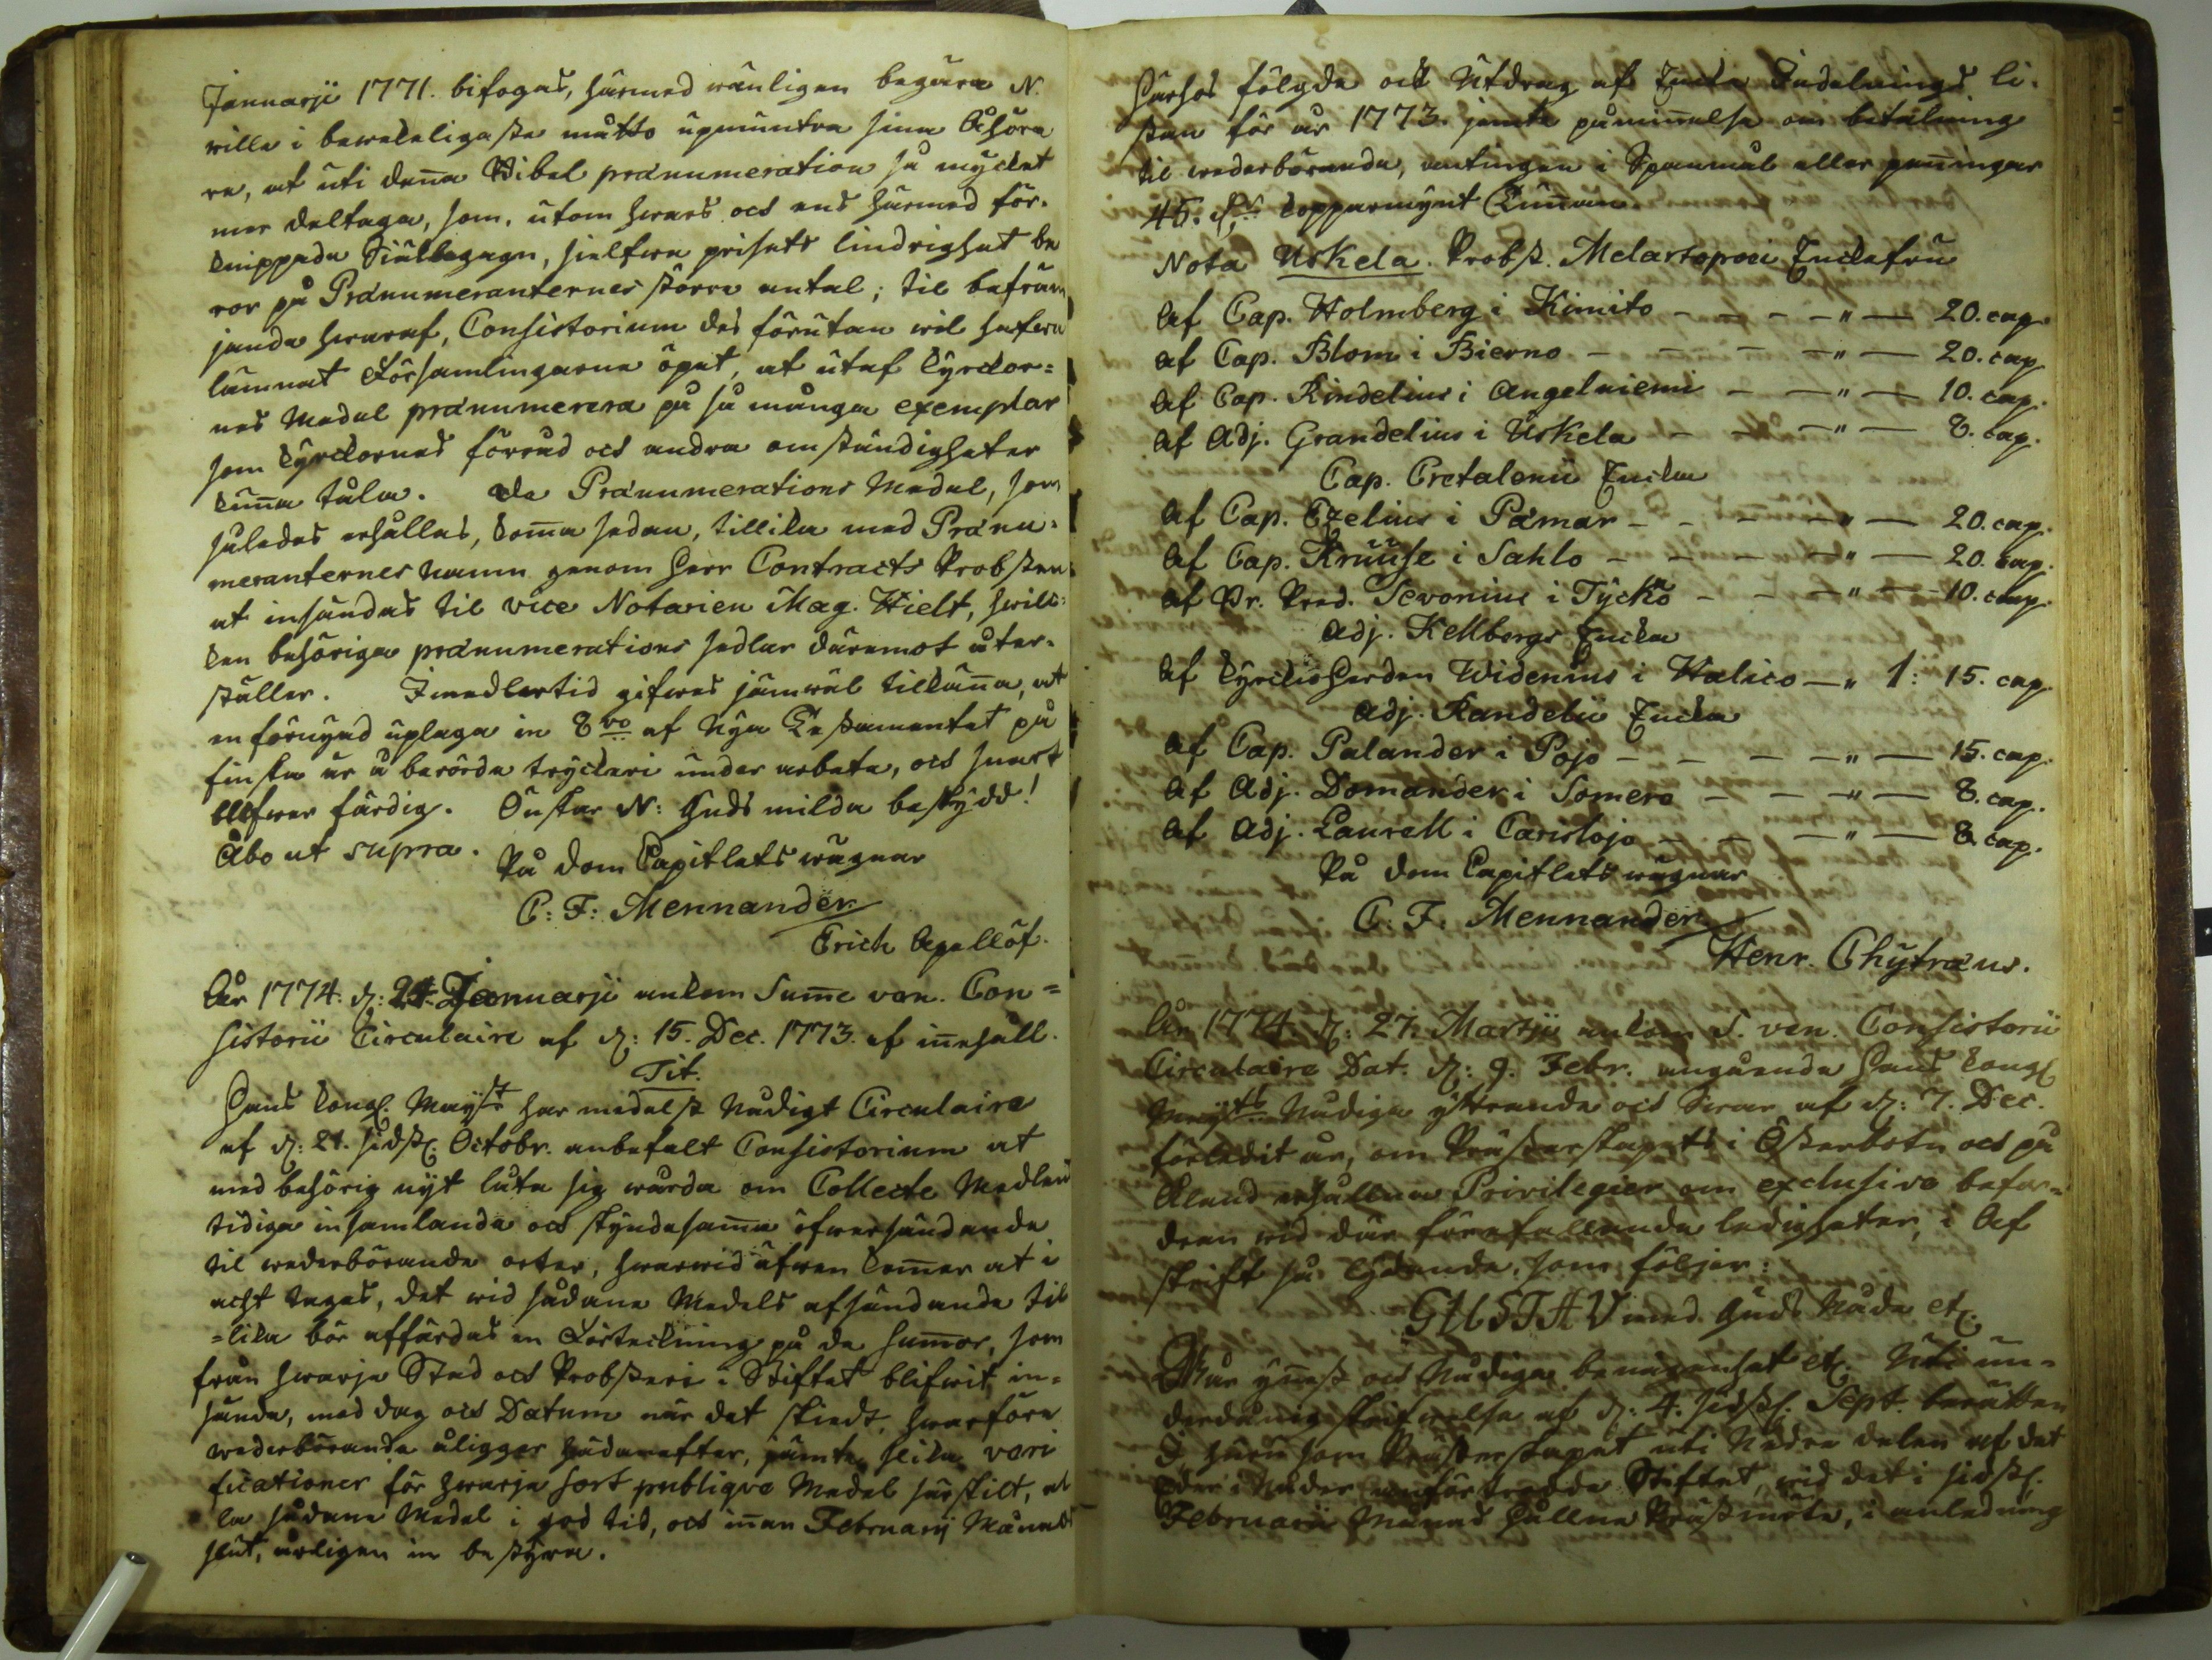 Januarji 1771. bifogas, härmed wänligen begära N.
wille i bewekeligaste måtto upmuntra sina Åhöra
re, at uti denna Bibel prænumeration så mycket
mer deltaga, som, utom hwars och ens härmed för-
knippade Siälegagn, sielfwa prisets lindrighet be
ror på Prænumeranternes större antal; til befräm
jande hwaraf, Consistorium des förutan wil hafwa
lämnat Församlingarne öpet, at utaf Kyrckor=
nes Medel prænumerera på så många exemplar
som Kyrckornes förråd och andra omständigheter
kunna tåla. De Prænumerations Medel, som
således erhållas, komma sedan, tillika med Prænu=
meranternes namn genom Herr Contracts Probsten
at insändas til vice Notarien Mag. Hielt, hwil=
ken behöriga prænumerations sedlar däremot åter-
ställer. Imedlertid gifwes jämwäl tilkänna, at
en förnyad uplaga in 8vo af Nya Testamentet på
finska är å berörde tryckeri under arbete, och snart
blifwer färdig. Önskar N: Guds milda beskydd!
Åbo ut supra.
På Dom Capitlets wägnar
C: F: Mennander
Erich Apellöf.
År 1774. d: 24. Januarji ankom Summe ven. Con=
sistorii Circulaire af d: 15. Dec. 1773. af innehåll.
Tit.
Hans Kongl. Mayst har medelst Nådigt Circulaire
af d: 21. sidstl. Octobr. anbefalt Consistorium at
med behörig nyt låta sig wårda om Collecte Medlens
tidiga insamlande och skyndesamma öfwersändande
til wederbörande orter, hwarwid äfwen kommer at i
acht tagas, det wid sådane Medels afsändande til
=lika bör affärdas en Förteckning på de summor, som
från hwarje Stad och Probsteri i Stiftet blifwit in=
sände, med dag och Datum när det skiedt, hwarföre
wederbörande åligger hädanefter, jämte slika veri
ficationer för hwarje sort publique Medel särskilt, al
la sådane Medel i god tid, och innan Februarij Månads
slut, årligen in bestyra.
Härhos följde ock Utdrag af Encke Indelnings li-
stan för år 1773. jemte påminnelse om betalning
til wederbörande, antingen i Spanmål eller penningar
45. dr kopparmynt Tunnan.
Nota Uskela. Probst. Melartopoei Enckefru
Af Cap. Holmberg i Kimito - - - - " - 20. cap.
af Cap. Blom i Bierno - - - - " - 20. cap.
Af Cap. Rindelius i Angelniemi - - " - 10. cap.
Af Adj. Grandelius i Uskela - - - " - 8. cap.
Cap. Cretalenii Encka
Af Cap. Ezelius i Pämar - - - - " - 20. cap.
Af Cap. Kruuse i Sahlo - - - - " - 20. cap.
Af Br. Pred. Sevonius i Tycko - - - " - 10. cap.
Adj. Kellbergs Encka
Af Kyrckioherden Widenius i Halico - " 1: 15. cap.
Adj. Randelii Encka
Af Cap. Palander i Pojo - - - - " - 15. cap.
Af Adj. Domander i Somero - - - " - 8. cap.
Af Adj. Laurell i Carislojo - - - " - 8. cap.
På Dom Capitlets wägnar
C. F. Mennander
Henr. Chytræus.
År 1774. d: 27. Martji ankom S. ven. Consistorii
Circulaire Dat. d: 9. Febr. angående Hans Kongl
Mayts Nådiga yttrande och Swar af d: 7. Dec.
förledit år, om Prästerskapets i Österbotn och på
Åland erhållne Privilegier om exclusive befor=
dran wid där förefallande ledigheter, i Af
skrift så lydande, som följer:
GUSTAV med Guds Nåde etc.
Wår ynnest och Nådiga benägenhet etc. Uti un=
derdånig skrifwelse af d: 4. sidstl. Sept. berätten
I, huru som Prästerskapet uti Nedre delen af det
Eder i Nåder anförtrodde Stiftet, wid det i sidstl.
Februarii Månad hållne Prästmöte, i anledning